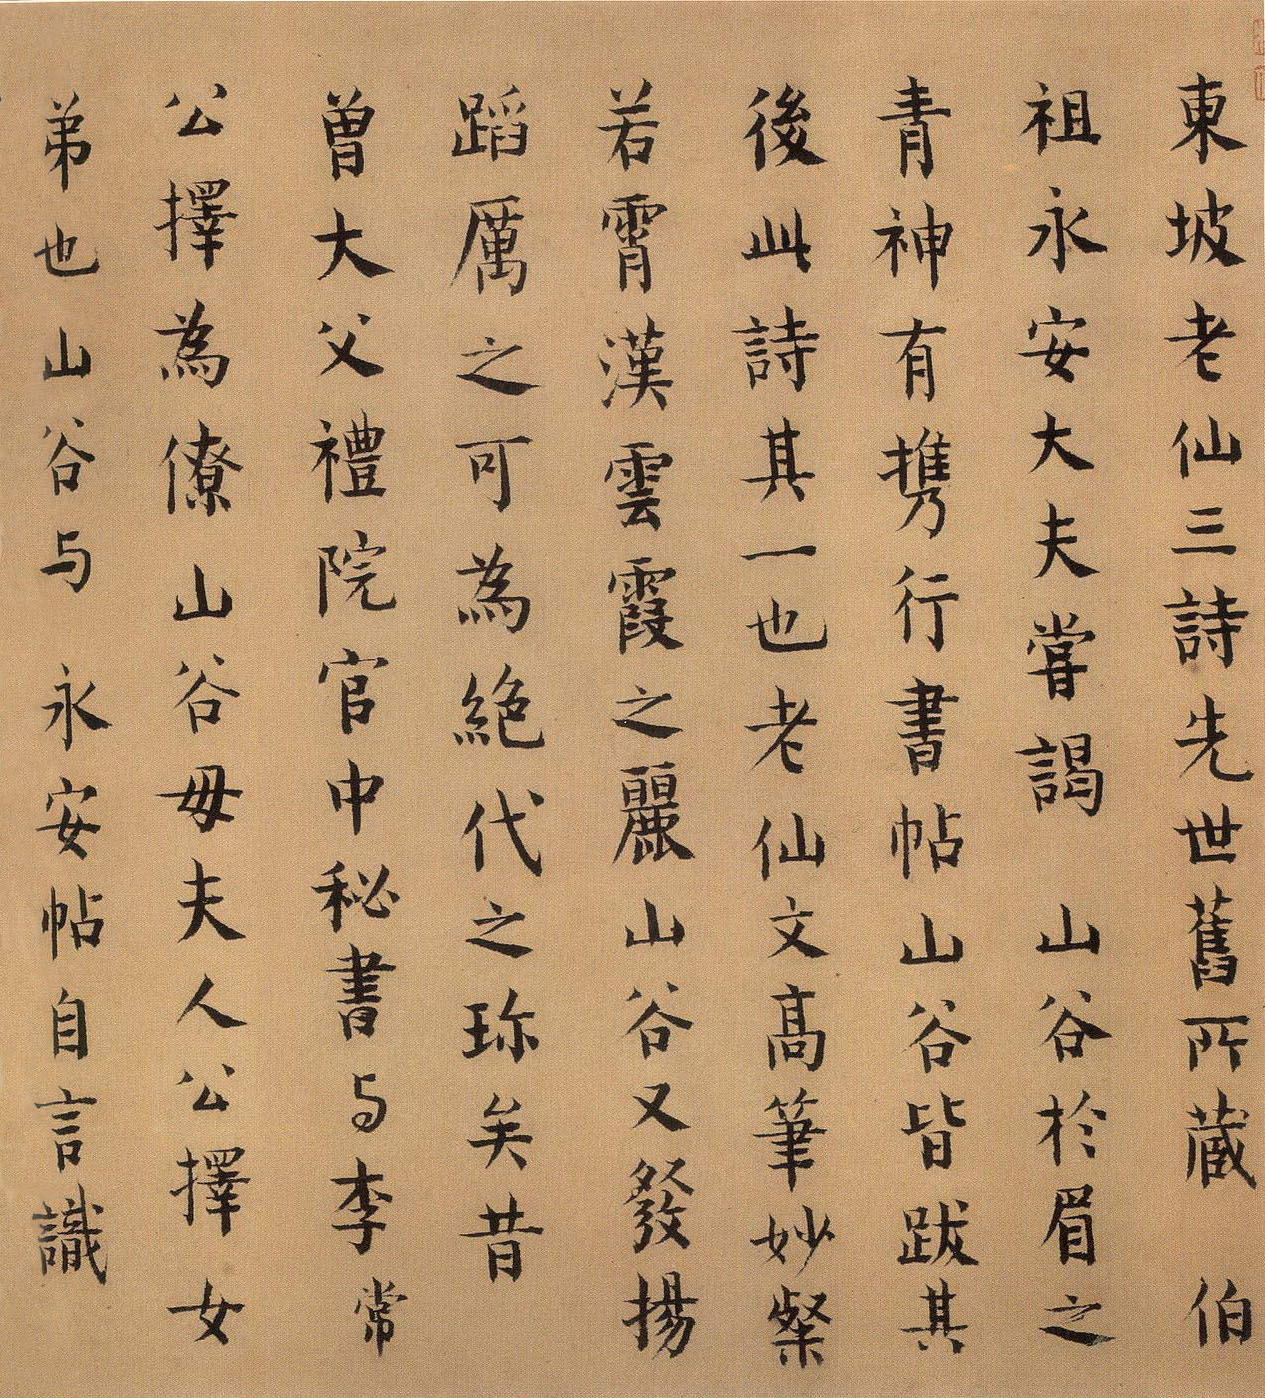 東坡老仙三詩先世舊所蔵伯
祖永安大夫嘗謁山谷於眉之
青神有携行書帖山谷皆跋其
後此詩其一也老仙文高筆妙粲
若霄漢雲霞之麗山谷又發揚
蹈厲之可為絕代之珎矣昔
曽大父禮院官中秘書与李常
公擇為僚山谷母夫人公擇女
弟也山谷与永安帖自言識